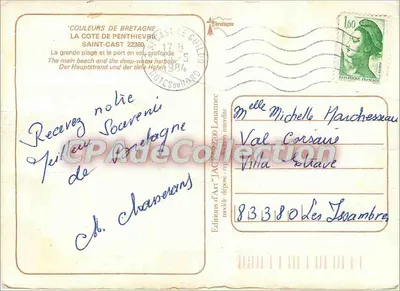 "COULEURS DE BRETAGNE"
LA COTE DE PENTHIEVRE
SAINT-CAST 22380
La grande plage et le port en eau profonde
The main beach and the deep-water harbour
Der Hauptstrand und der tiefe Hafen
Recevez notre
Meilleur Souvenir
de Bretagne
Bretagne
17 H
1984
COTES DU NORD
Editions d'Art "JACK" 22700 Louannec
modèle déposé - reproduction interdite
1,60
REPUBLIQUE FRANÇAISE
Melle Michelle Marchesseau
Val Corsaire
Villa
83380 Les Issambres
CPAdeCollection